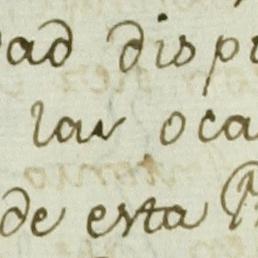 dad disp
las oca
de esta P